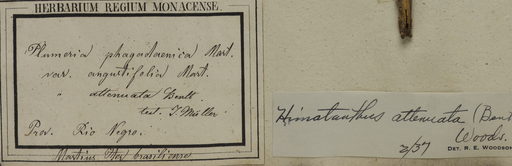 HERBARIUM REGIUM MONACENSE.
Plumeria phagedaenica Mart.
var. angustifolia Mart.
" attenuata Benth
test. J. Müller
Prov. Rio Negro.
Martius Iter brasiliense
Himatanthus attenuata (Bent
Woods.
2/37
DET. R. E. WOODSON